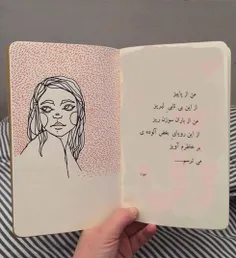 من از پاییز
از این بی تابی لبریز
من از باران سوزن ریز
از این رویای بغض آلوده ی
بر خاطرم آویز
می ترسم....